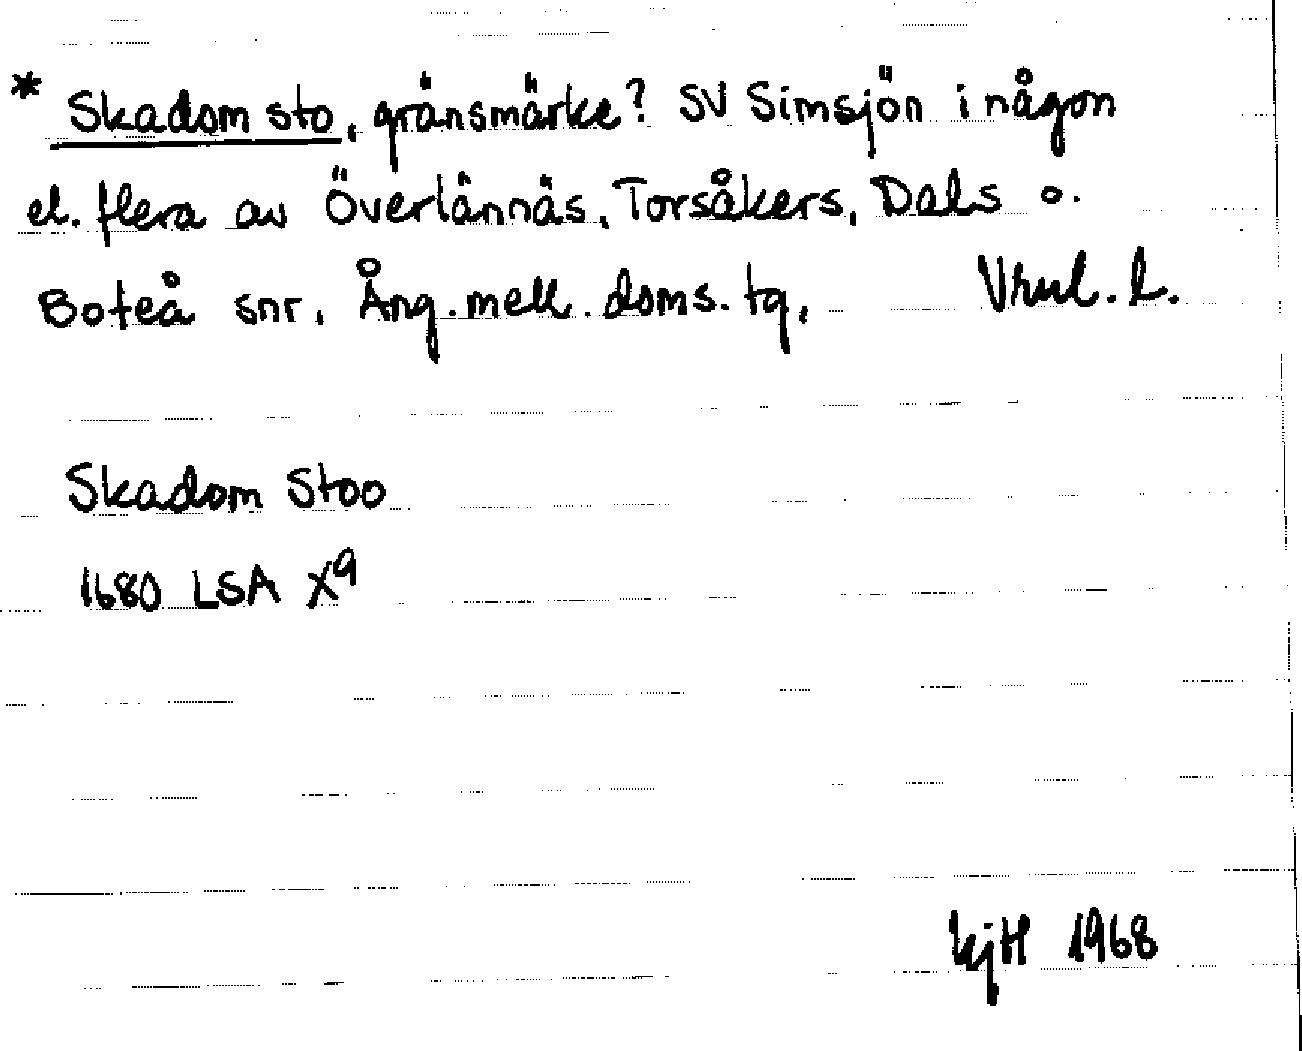 * Skadom sto, gränsmärke? SV Simsjön i någon
el. flera av Överlännäs, Torsåkers, Dals o.
Boteå snr. Ång. mell. doms. tg. Vnul. L.
Skadom Stoo
1680 LSA X9
KjH 1968